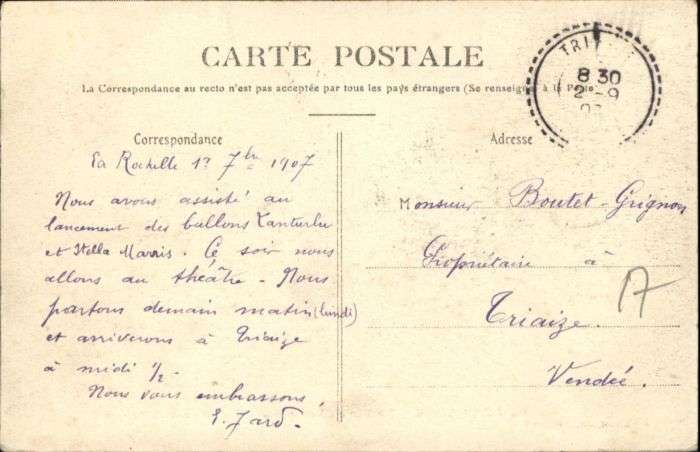 CARTE POSTALE
La Correspondance au recto n'est pas acceptée par tous les pays étrangers (Se renseigner à la Poste
Correspondance
La Rochelle 1? 7bre 1907
Nous avons assisté au
lancement des ballons Lanturlu
et Stella Maris. Ce soir nous
allons au théâtre. Nous
partons demain matin (lundi)
et arriverons à Triaize
à midi 1/2
Nous vous embrassons,
E. Jard.
Adresse
Monsieur Boutet-Grignon
Propriétaire à
Triaize.
Vendée.
TRI
8 30
2-9